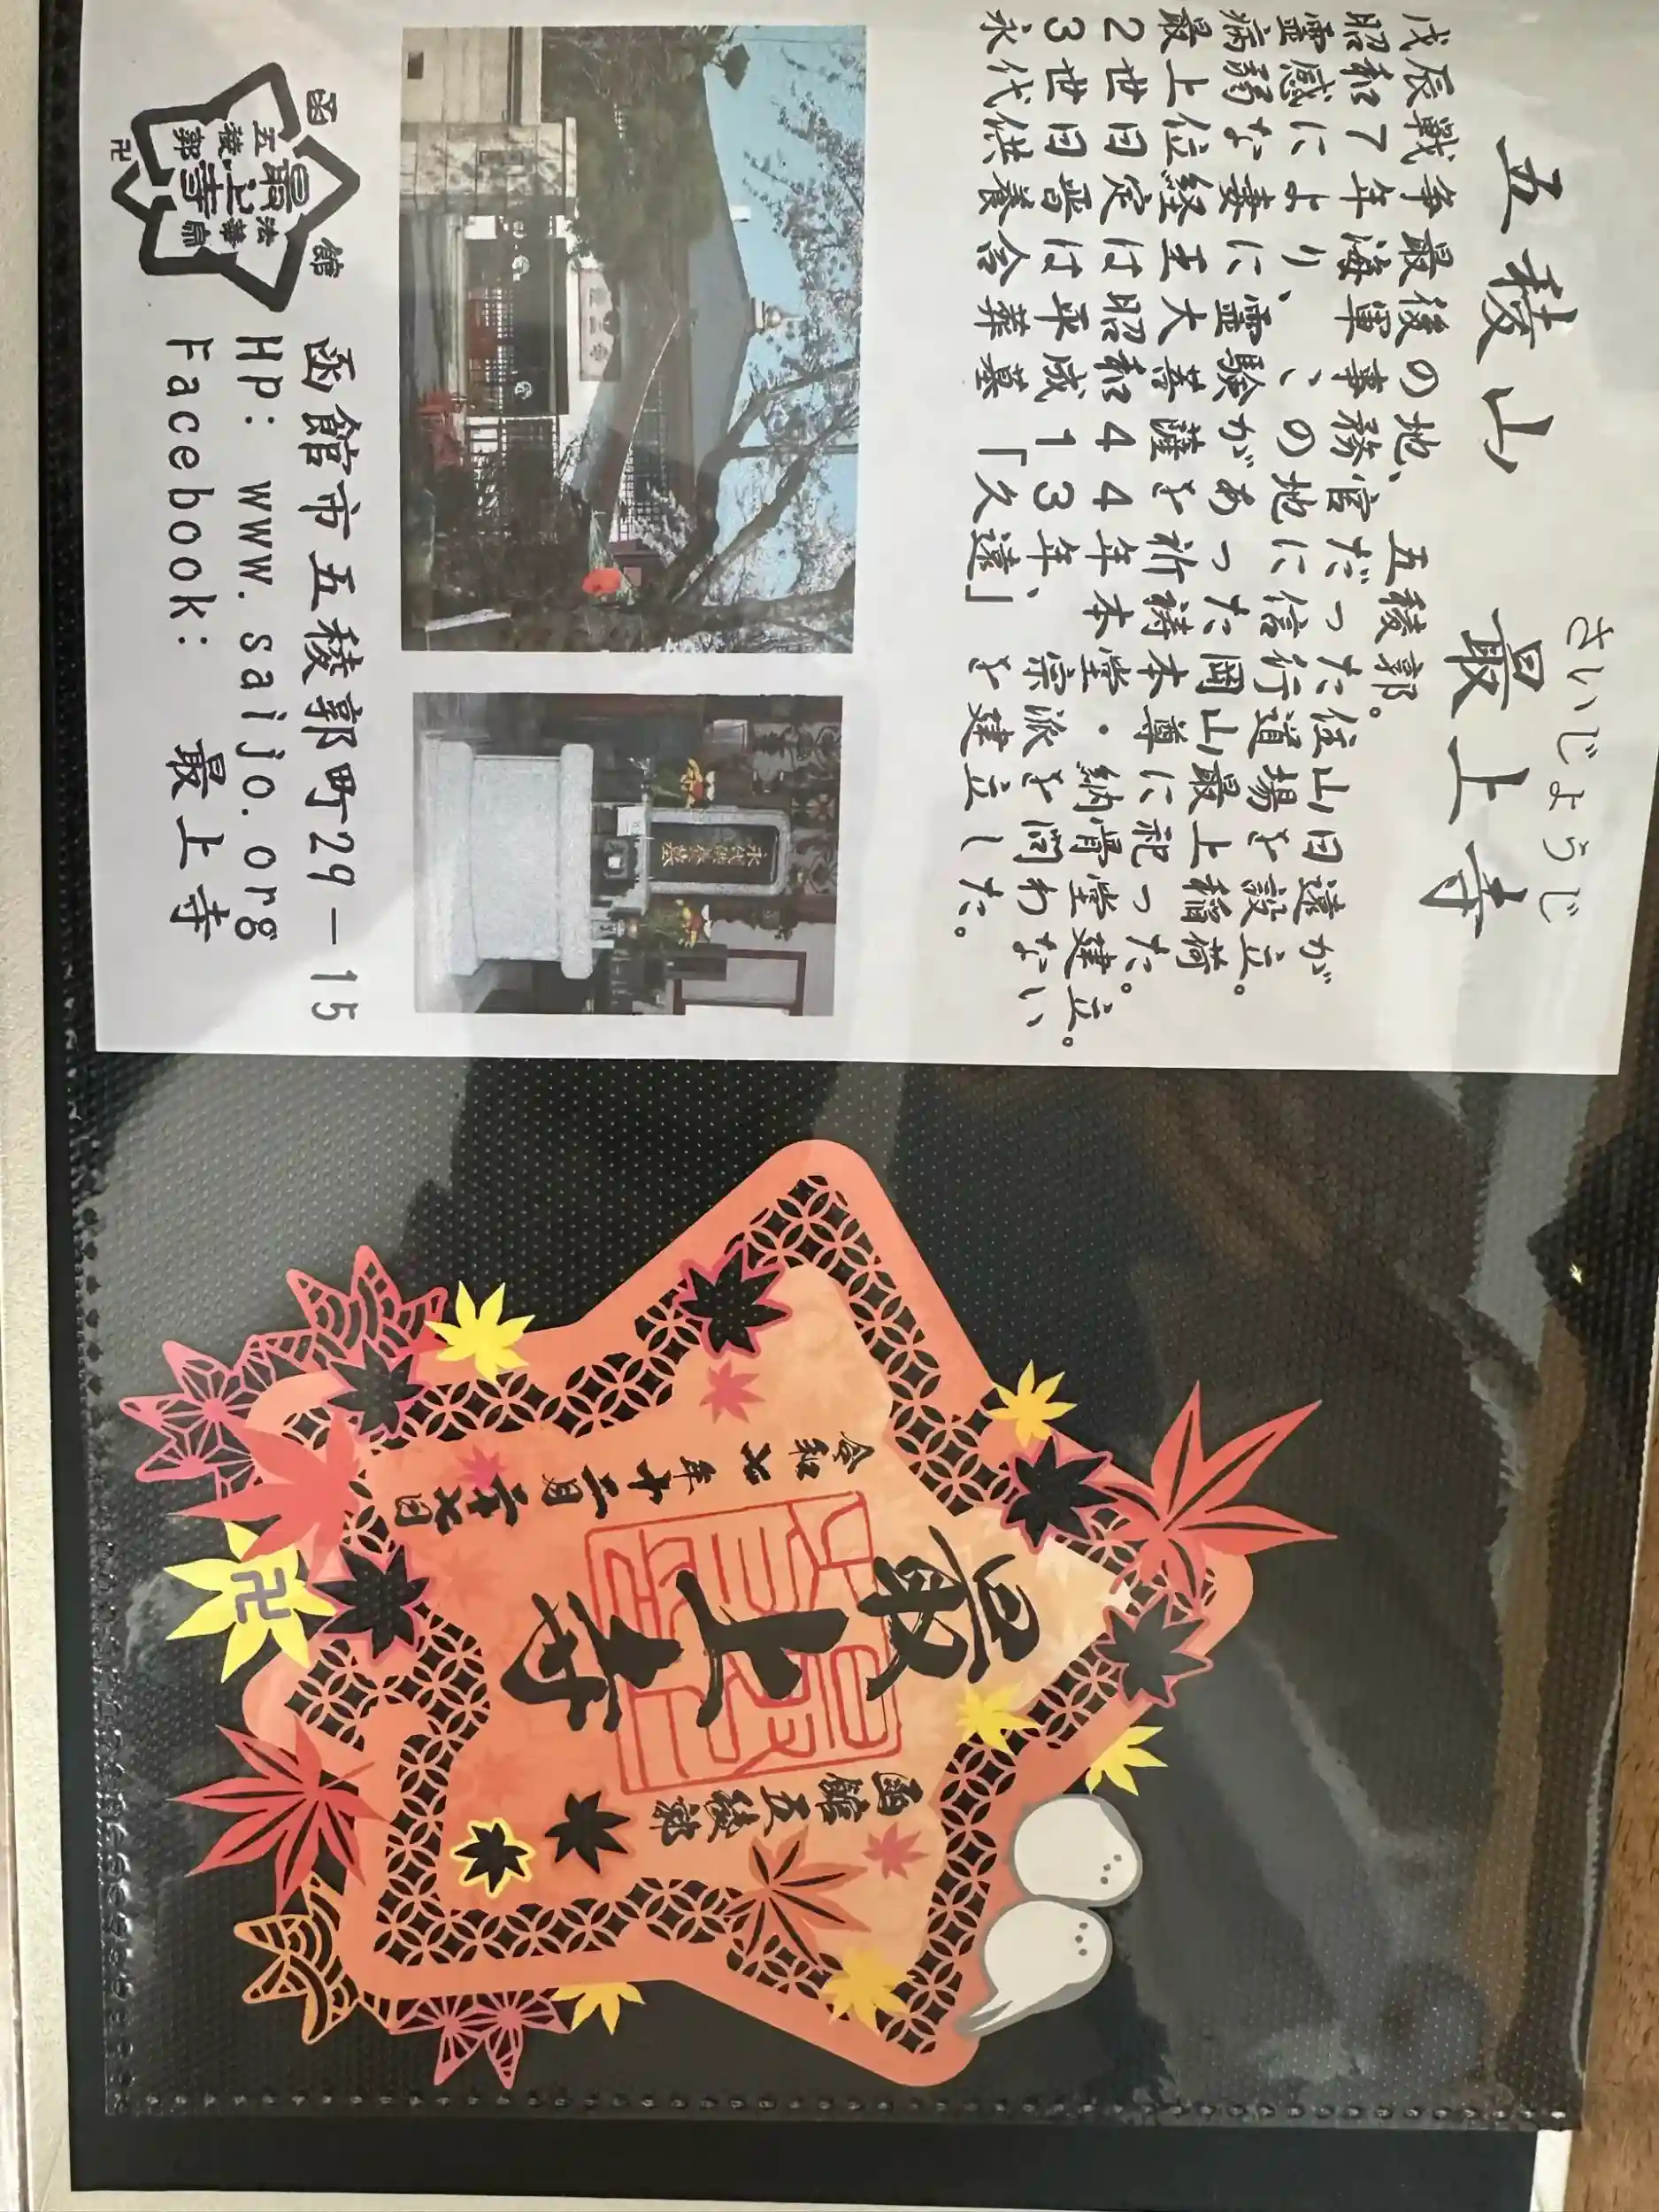 さいじょうじ
五稜山 最上寺
戊辰戦争最後の地、五稜郭。
昭和7年海軍事務官だった住山日遠が
霊感により、の地に信行道場を設立。
病弱な妻に霊験があった岡山最上稲荷
最上位経王大菩薩を祈祷本尊に祀った。
2世日定は昭和44年本堂・納骨堂建立。
3世日晋は平成13年、宗派を問わない、
永代供養合葬墓「久遠」を建立した。
永代供養墓
函館
五稜郭
最上寺
法華宗
卍
函館市五稜郭町29－15
Hp: www.saijo.org
Facebook: 最上寺
函館五稜郭
最上寺
令和七年十二月二十七日
卍